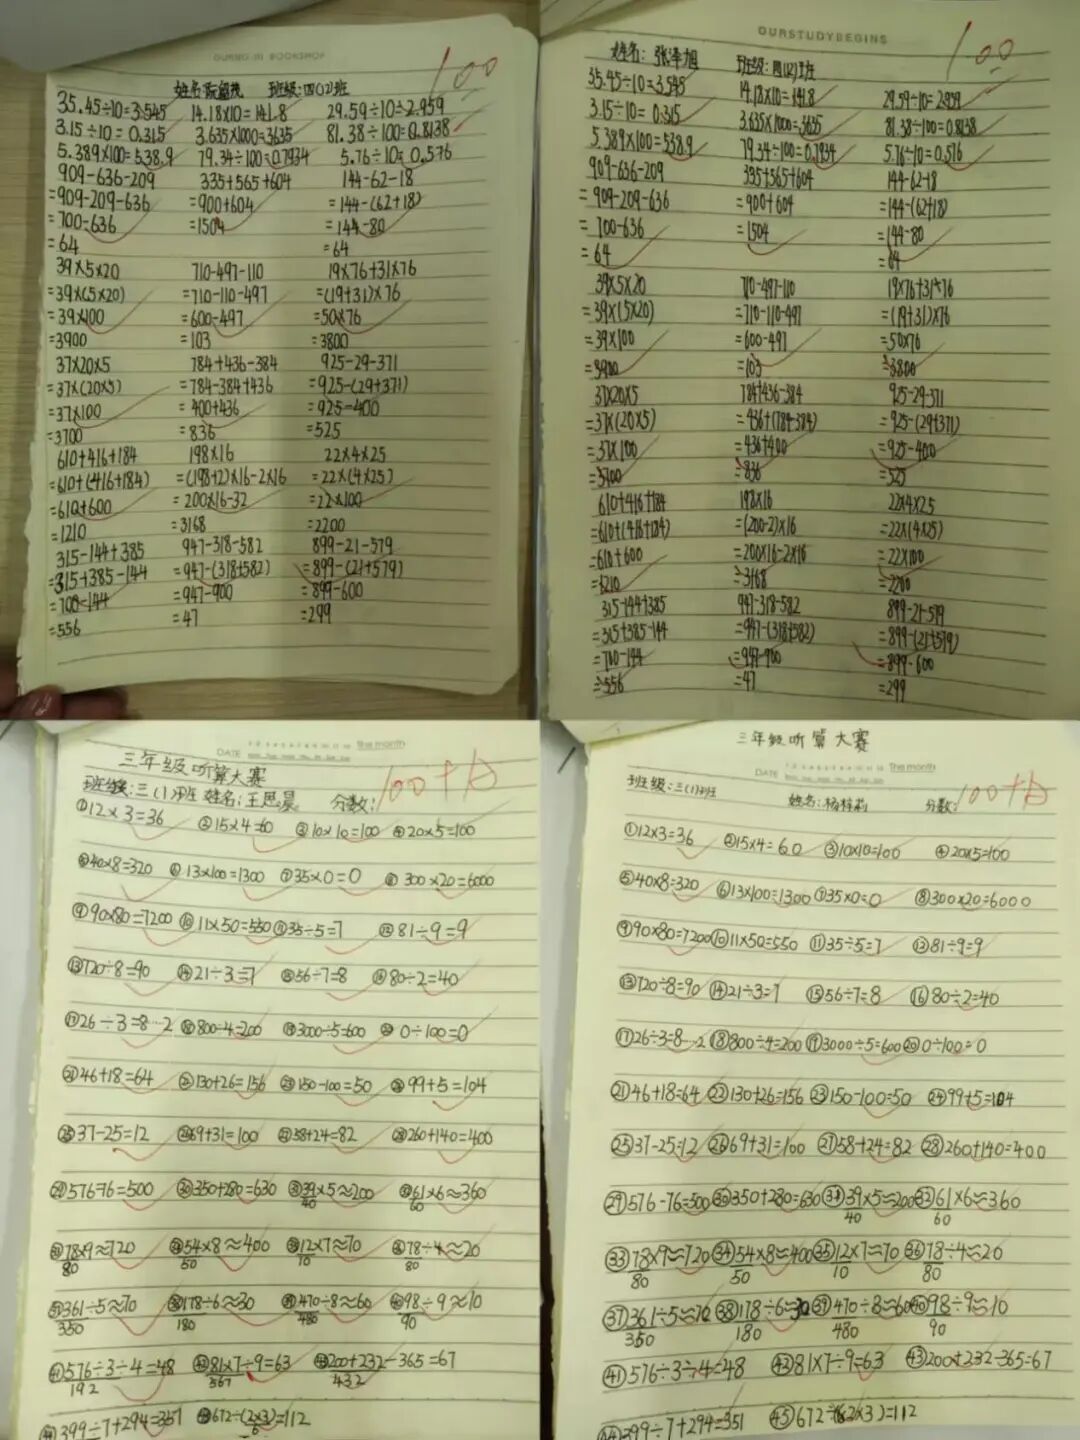 OURNG IN BOOKSHOP
100
姓名: 班级:四(2)班
35.45÷10=3.545 14.18×10=141.8 29.59÷10=2.959
3.15÷10=0.315 3.635×1000=3635 81.38÷100=0.8138
5.389×100=538.9 79.34÷100=0.7934 5.76÷10=0.576
909-636-209 335+565+604 144-62-18
=909-209-636 =900+604 =144-(62+18)
=700-636 =1504 =144-80
=64 =64
39×5×20 710-497-110 19×76+31×76
=39×(5×20) =710-110-497 =(19+31)×76
=39×100 =600-497 =50×76
=3900 =103 =3800
37×20×5 784+436-384 925-29-371
=37×(20×5) =784-384+436 =925-(29+371)
=37×100 =400+436 =925-400
=3700 =836 =525
610+416+184 198×16 22×4×25
=610+(416+184) =(198+2)×16-2×16 =22×(4×25)
=610+600 =200×16-32 =22×100
=1210 =3168 =2200
315-144+385 947-318-582 899-21-579
=315+385-144 =947-(318+582) =899-(21+579)
=700-144 =947-900 =899-600
=556 =47 =299
OURSTUDYBEGINS
100
姓名:张泽旭 班级:四(2)班
35.45÷10=3.545 14.18×10=141.8 29.59÷10=2.959
3.15÷10=0.315 3.635×1000=3635 81.38÷100=0.8138
5.389×100=538.9 79.34÷100=0.7934 5.76÷10=0.576
909-636-209 335+565+604 144-62-18
=909-209-636 =900+604 =144-(62+18)
=700-636 =1504 =144-80
=64 =64
39×5×20 710-497-110 19×76+31×76
=39×(5×20) =710-110-497 =(19+31)×76
=39×100 =600-497 =50×76
=3900 =103 =3800
37×20×5 784+436-384 925-29-371
=37×(20×5) =436+(784-384) =925-(29+371)
=37×100 =436+400 =925-400
=3700 =836 =525
610+416+184 198×16 22×4×25
=610+(416+184) =(200-2)×16 =22×(4×25)
=610+600 =200×16-2×16 =22×100
=1210 =3168 =2200
315-144+385 947-318-582 899-21-579
=315+385-144 =947-(318+582) =899-(21+579)
=700-144 =947-900 =899-600
=556 =47 =299
DATE The month
三年级听算大赛
班级:三(1)班 姓名:王思晨 分数: 100+
①12×3=36 ②15×4=60 ③10×10=100 ④20×5=100
⑤40×8=320 ⑥13×100=1300 ⑦35×0=0 ⑧300×20=6000
⑨90×80=7200 ⑩11×50=550 ⑪35÷5=7 ⑫81÷9=9
⑬720÷8=90 ⑭21÷3=7 ⑮56÷7=8 ⑯80÷2=40
⑰26÷3=8…2 ⑱800÷4=200 ⑲3000÷5=600 ⑳0÷100=0
㉑46+18=64 ㉒130+26=156 ㉓150-100=50 ㉔99+5=104
㉕37-25=12 ㉖69+31=100 ㉗58+24=82 ㉘260+140=400
㉙576-76=500 ㉚350+280=630 ㉛39×5≈200 ㉜61×6≈360
40 60
㉝78×9≈720 ㉞54×8≈400 ㉟12×7≈70 ㊱78÷4≈20
80 50 10 80
㊲361÷5≈70 ㊳178÷6≈30 ㊴470÷8≈60 ㊵98÷9≈10
350 180 480 90
㊶576÷3÷4=48 ㊷81×7÷9=63 ㊸200+232-365=67
192 567 432
㊹399÷7+294=351 ㊺672÷(2×3)=112
6
三年级听算大赛
DATE The month
班级:三(1)班 姓名: 分数: 100+
①12×3=36 ②15×4=60 ③10×10=100 ④20×5=100
⑤40×8=320 ⑥13×100=1300 ⑦35×0=0 ⑧300×20=6000
⑨90×80=7200 ⑩11×50=550 ⑪35÷5=7 ⑫81÷9=9
⑬720÷8=90 ⑭21÷3=7 ⑮56÷7=8 ⑯80÷2=40
⑰26÷3=8…2 ⑱800÷4=200 ⑲3000÷5=600 ⑳0÷100=0
㉑46+18=64 ㉒130+26=156 ㉓150-100=50 ㉔99+5=104
㉕37-25=12 ㉖69+31=100 ㉗58+24=82 ㉘260+140=400
㉙576-76=500 ㉚350+280=630 ㉛39×5≈200 ㉜61×6≈360
40 60
㉝78×9≈720 ㉞54×8≈400 ㉟12×7≈70 ㊱78÷4≈20
80 50 10 80
㊲361÷5≈70 ㊳178÷6≈30 ㊴470÷8≈60 ㊵98÷9≈10
350 180 480 90
㊶576÷3÷4=48 ㊷81×7÷9=63 ㊸200+232-365=67
㊹399÷7+294=351 ㊺672÷(2×3)=112